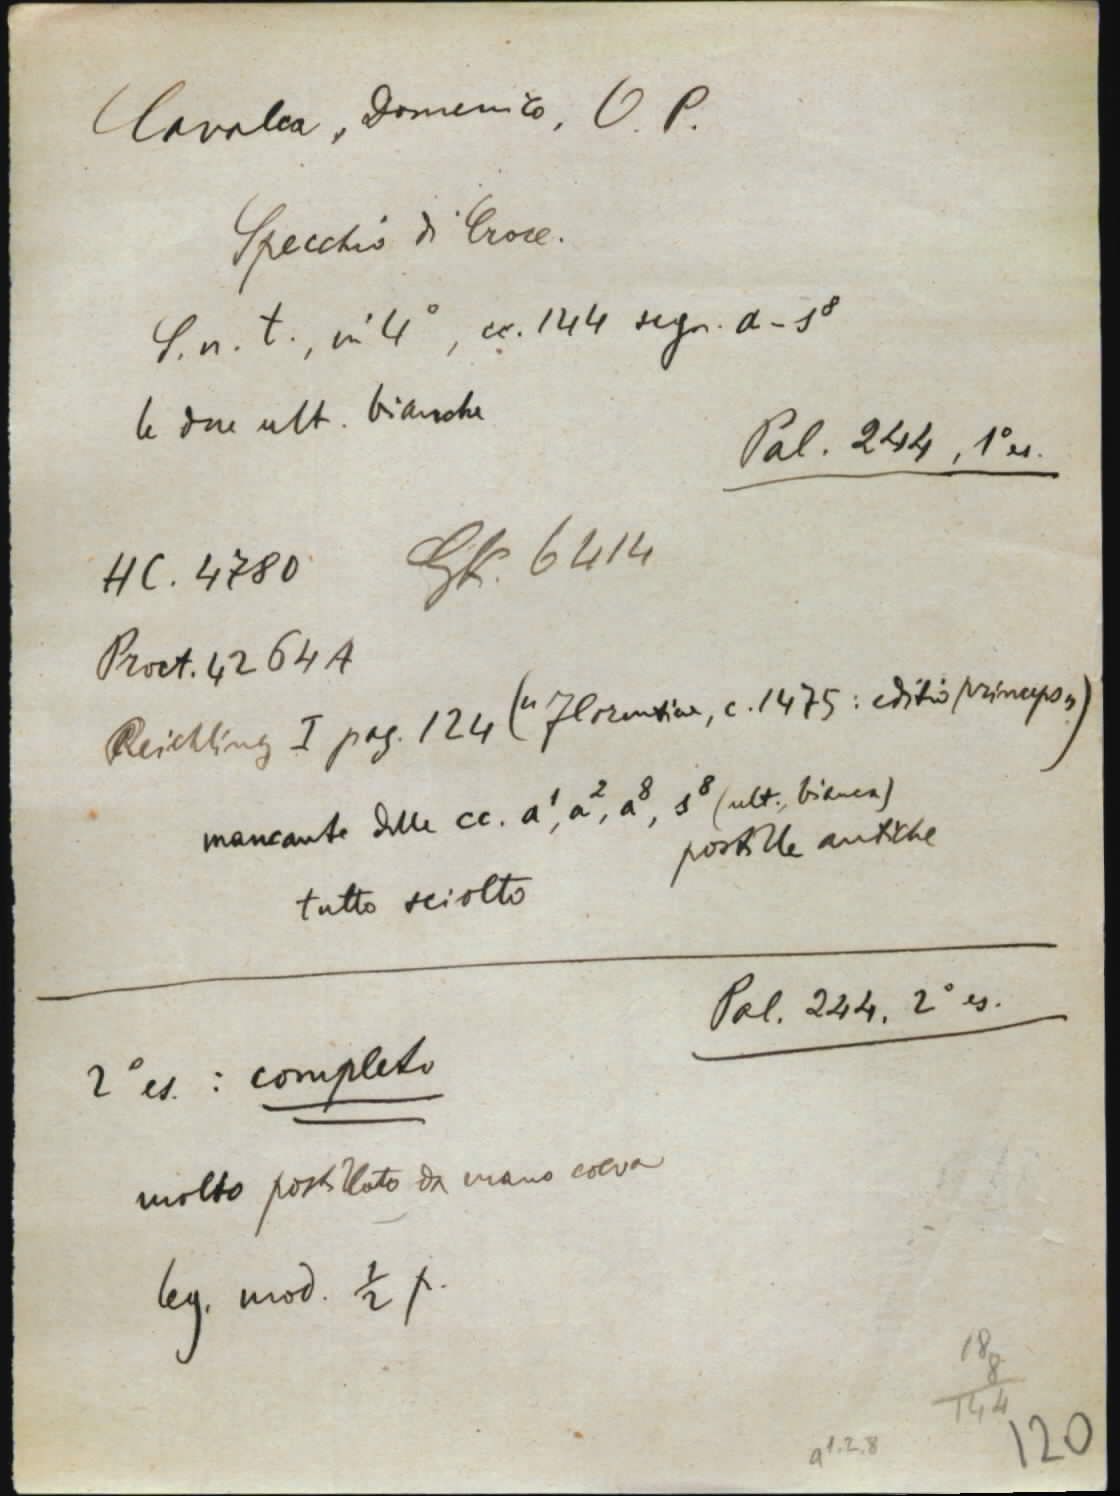 Cavalca, Domenico, O. P.
Specchio di Croce.
S. n. t., in 4°, cc. 144 segn. a-s⁸
le due ult. bianche
Pal. 244, 1° es.
HC. 4780 GK. 6414
Proct. 4264A
Reichling I pag. 124 ("Florentiae, c. 1475: editio princeps")
mancante delle cc. a¹, a², a⁸, s⁸ (ult., bianca)
postille antiche
tutto sciolto
Pal. 244, 2° es.
2° es. : completo
molto postillato da mano coeva
leg. mod. ½ p.
18
8
144
a1.2.8
120